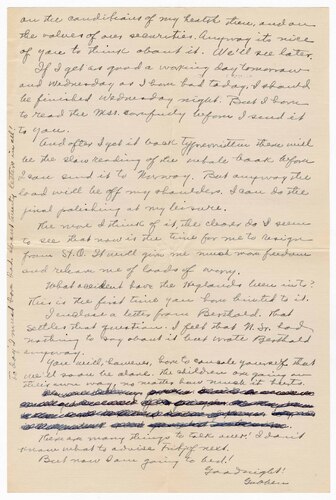 on the conditions of my health then, and on
the values of our securities. Anyway it's nice
of you to think about it. We'll see later.
If I get as good a working day tomorrow
and Wednesday as I have had today, I should
be finished Wednesday night. But I have
to read the Mss. carefully before I send it
to you.
And after I get it back typewritten there will
be the slow reading of the whole book before
I can send it to Norway. But anyway the
load will be off my shoulders. I can do the
final polishing at my leisure.
The more I think of it, the clearer do I seem
to see that now is the time for me to resign
from St. O. It will give me much more freedom
and release me of loads of worry.
What accident have the Hyglands been into?
This is the first time you have hinted to it.
I enclose a letter from Berthold. That
settles that question. I felt that N. Jr. had
nothing to say about it but wrote Berthold
anyway.
You will, however, have to console yourself that
we'll soon be alone. The children are going
their own way, no matter how much it hurts.
There are many things to talk over. I don't
know what to advise next.
But now I am going to bed!
Goodnight!
Today I must have had about twenty letters in all!